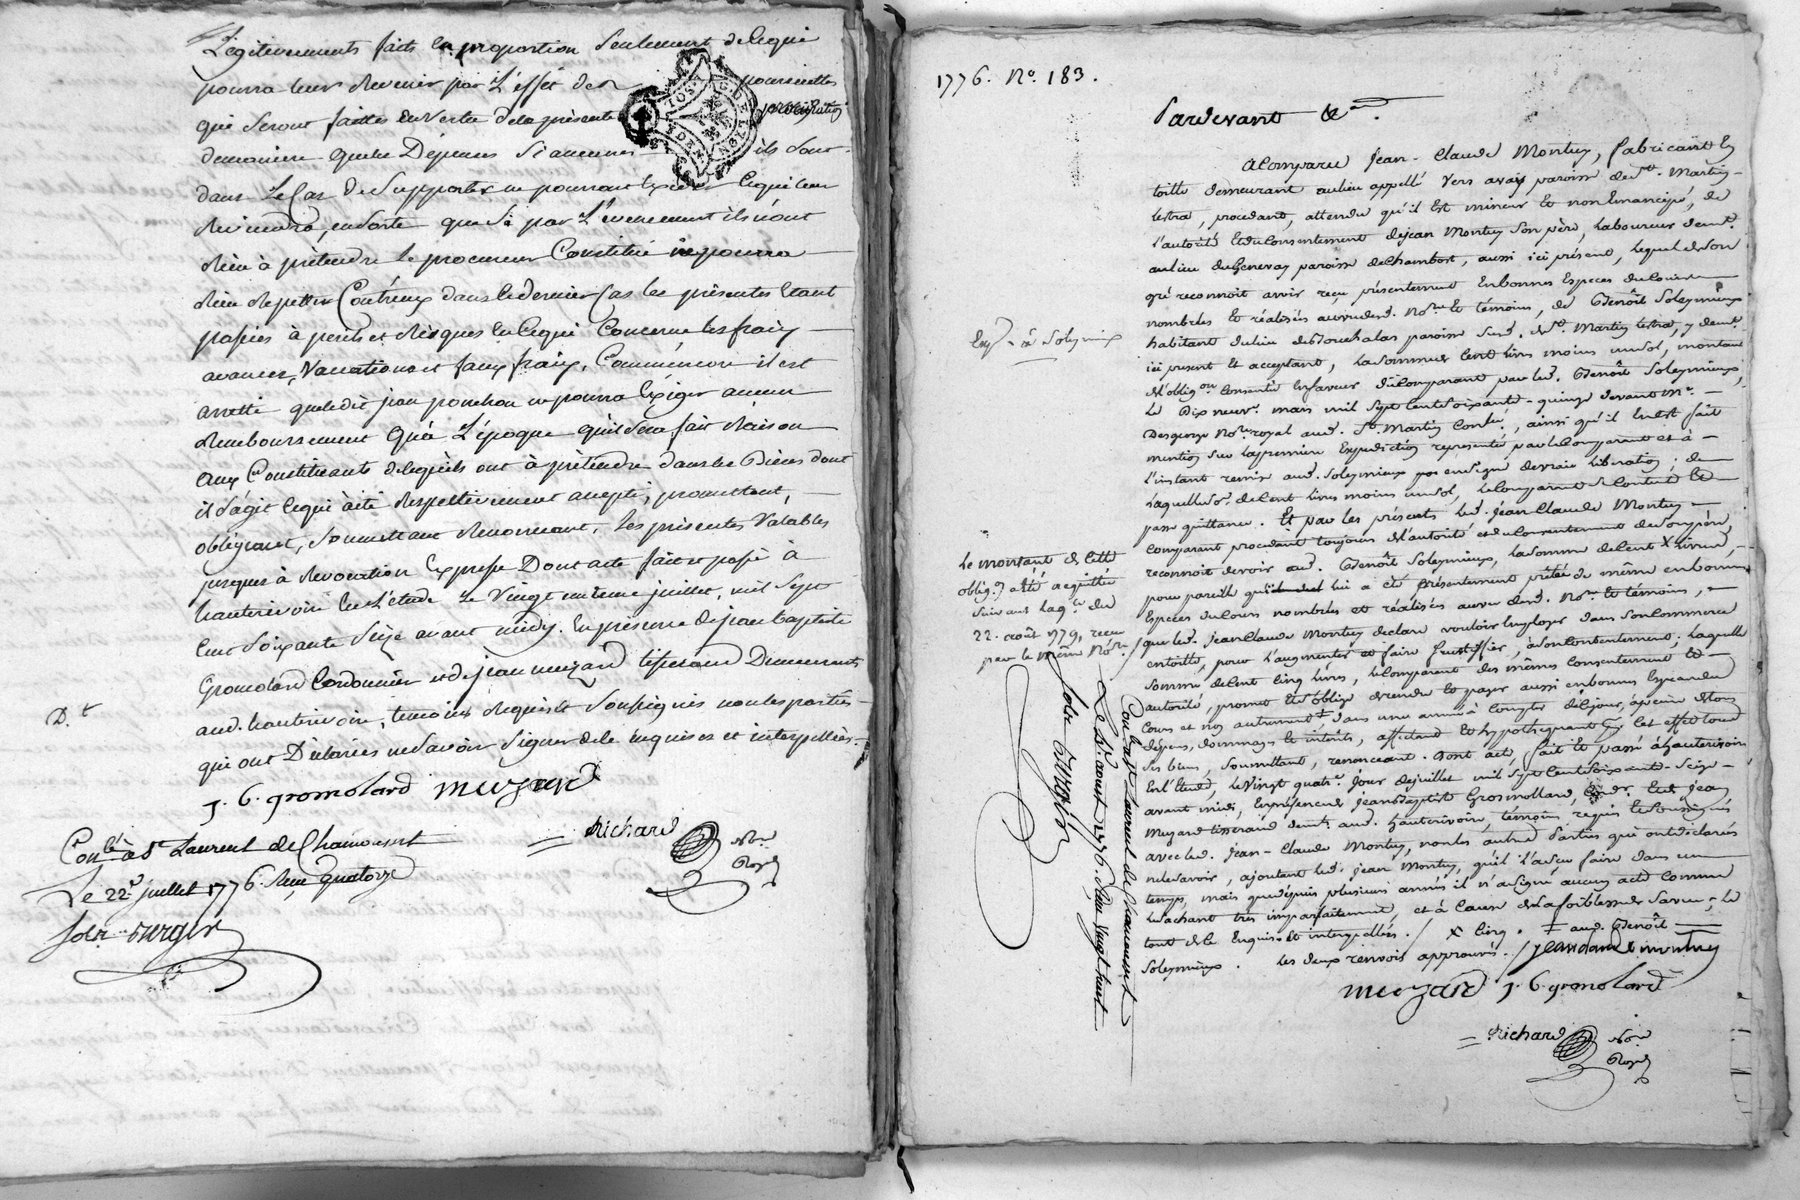 Légitimements faits en proportion seulement de ce qui
pourra leur revenir par L'effet des poursuittes
qui seront faittes en vertu de la présente procuration
de maniere que les Dépenses Si aucunes ils sont
dans Le Cas de Supporter ne pourront Exceder ce qui leur
reviendra, en sorte que Si par L'évenement ils n'ont
rien à prétendre le procureur Constitué ne pourra
rien repetter Contr'eux dans le dernier Cas les présentes Etant
passées à perils et risques En ce qui Concerne les frais
avances, Vaccations et faux fraix, Comme encore il est
arretté que ledit jean ponchon ne pourra Exiger aucun
Remboursement qu'à L'époque qu'il sera fait Raison
aux Constituants de ce qu'ils ont à prétendre dans les Biens dont
il s'agit ce qui à été Respectivement accepté, promettant,
obligeant, Soumettant Renonceant, les présentes Valables
jusques à Revocation Expresse Dont acte fait et passé à
hauterivoire En L'étude Le Vingt uniéme juillet, mil Sept
Cent Soixante Seize avant midy. En présence de jean baptiste
Gromolard Cordonnier et de jean muzard tisserand Demeurants
aud. hauterivoire, temoins Requis et Soussignés non les parties
qui ont Déclarées ne Savoir Signer de le Enquises et interpellées.
D.t
J. B. gromolard muzard
Richard No.re Royal
Con.lé à S.t Laurent de Chamousset
Le 22.e juillet 1776. Reçu quatorze
sols Burgir
1776. N.o 183.
Pardevant &.a
A Comparu Jean-Claude Montuy, fabricant En
toille demeurant au lieu appellé Vers avais paroisse de S.t Martin-
Lestra, procedant, attendu qu'il Est mineur Et non Emancipé, de
l'autorité Et du Consentement de jean Montuy Son père, Laboureur dem.t
au lieu du Genevay paroisse de Chambost, aussi ici présent, Lequel de Son
gré reconnoit avoir reçu présentement En bonnes Especes du Cours
nombrées Et réalisées au vu dend. No.re Et témoins, de Benoît Soleymieux
habitant du lieu de Bouchalas paroisse Susd. de S.t Martin Lestra, y dem.t
ici present Et acceptant, La Somme de Cent livres moins un Sol, montant
d'oblig.on Consentie En faveur du Comparant par led. Benoît Soleymieux,
Le Dix neuv.e mars mil Sept Cent Soixante-quinze devant M.e
Desgeorge No.re royal aud. S.t Martin Con.lé, ainsi qu'il En Est fait
mention Sur la premiere Expedition representée par le Comparant Et à
l'instant remise aud. Soleymieux pour En Signe de vraie Liberation; de
Laquelle So.e de Cent livres moins un Sol, le Comparant Se Contente Et
passe quittance. Et par les présentes led. Jean Claude Montuy
Comparant procedant toujours de l'autorité et du Consentement de Son père,
reconnoit devoir aud. Benoît Soleymieux, la Somme de Cent X Livres,
pour pareille qui lui a Eté présentement prêtée de même En bonnes
Especes du Cours nombrées et réalisées au vu dend. No.re Et témoins,
que led. Jean Claude Montuy declare vouloir Employer dans Son Commerce
En toille, pour l'augmenter Et faire fructifier, à Son Contentement; Laquelle
Somme de Cent Cinq Livres, le Comparant des mêmes Consentement Et
autorité, promet Et oblige de rendre Et payer aussi En bonnes Especes du
Cours et non autrement ‡ dans une année à Compter de Ce jour, à peine de tous
dépens, dommages Et intérêts, affectant Et hypothequant à Cet effet tous
Ses biens, Soumettant, renonceant. Dont acte, fait Et passé à hauterivoire
En l'Etude, Le Vingt quatr.e Jour de juillet mil Sept Cent Soixante-Seize
avant midi, En présence de jean Baptiste Gromollard, Et de Jean
Muzard tisserand dem.ts aud. hauterivoire, témoins requis Et Soussignés
avec led. Jean-Claude Montuy, non les autres Parties qui ont déclarées
ne le Savoir, ajoutant led. Jean Montuy, qu'il l'a Sçu faire dans un
temps, mais que depuis plusieurs années il n'a Signé aucun acte Comme
le Sachant très imparfaitement, et à Cause de la foiblesse de Sa vue; le
tout de le Enquis Et interpellées. / X Cinq. ‡ aud. Benoît
Soleymieux. Les deux renvois approuvés. / jean claude montuy
muzard J. B. gromolard
Richard No.re Royal
Exp.é à Soleymieux
Le montant de Cette
oblig.on a Eté acquitté
Suivant la q.ce du
22. août 1779, reçue
par le même No.re
Con.lé à S.t Laurent de Chamousset
Le 2.e aoust 1776. Reçu Vingt huit
sols Burgir